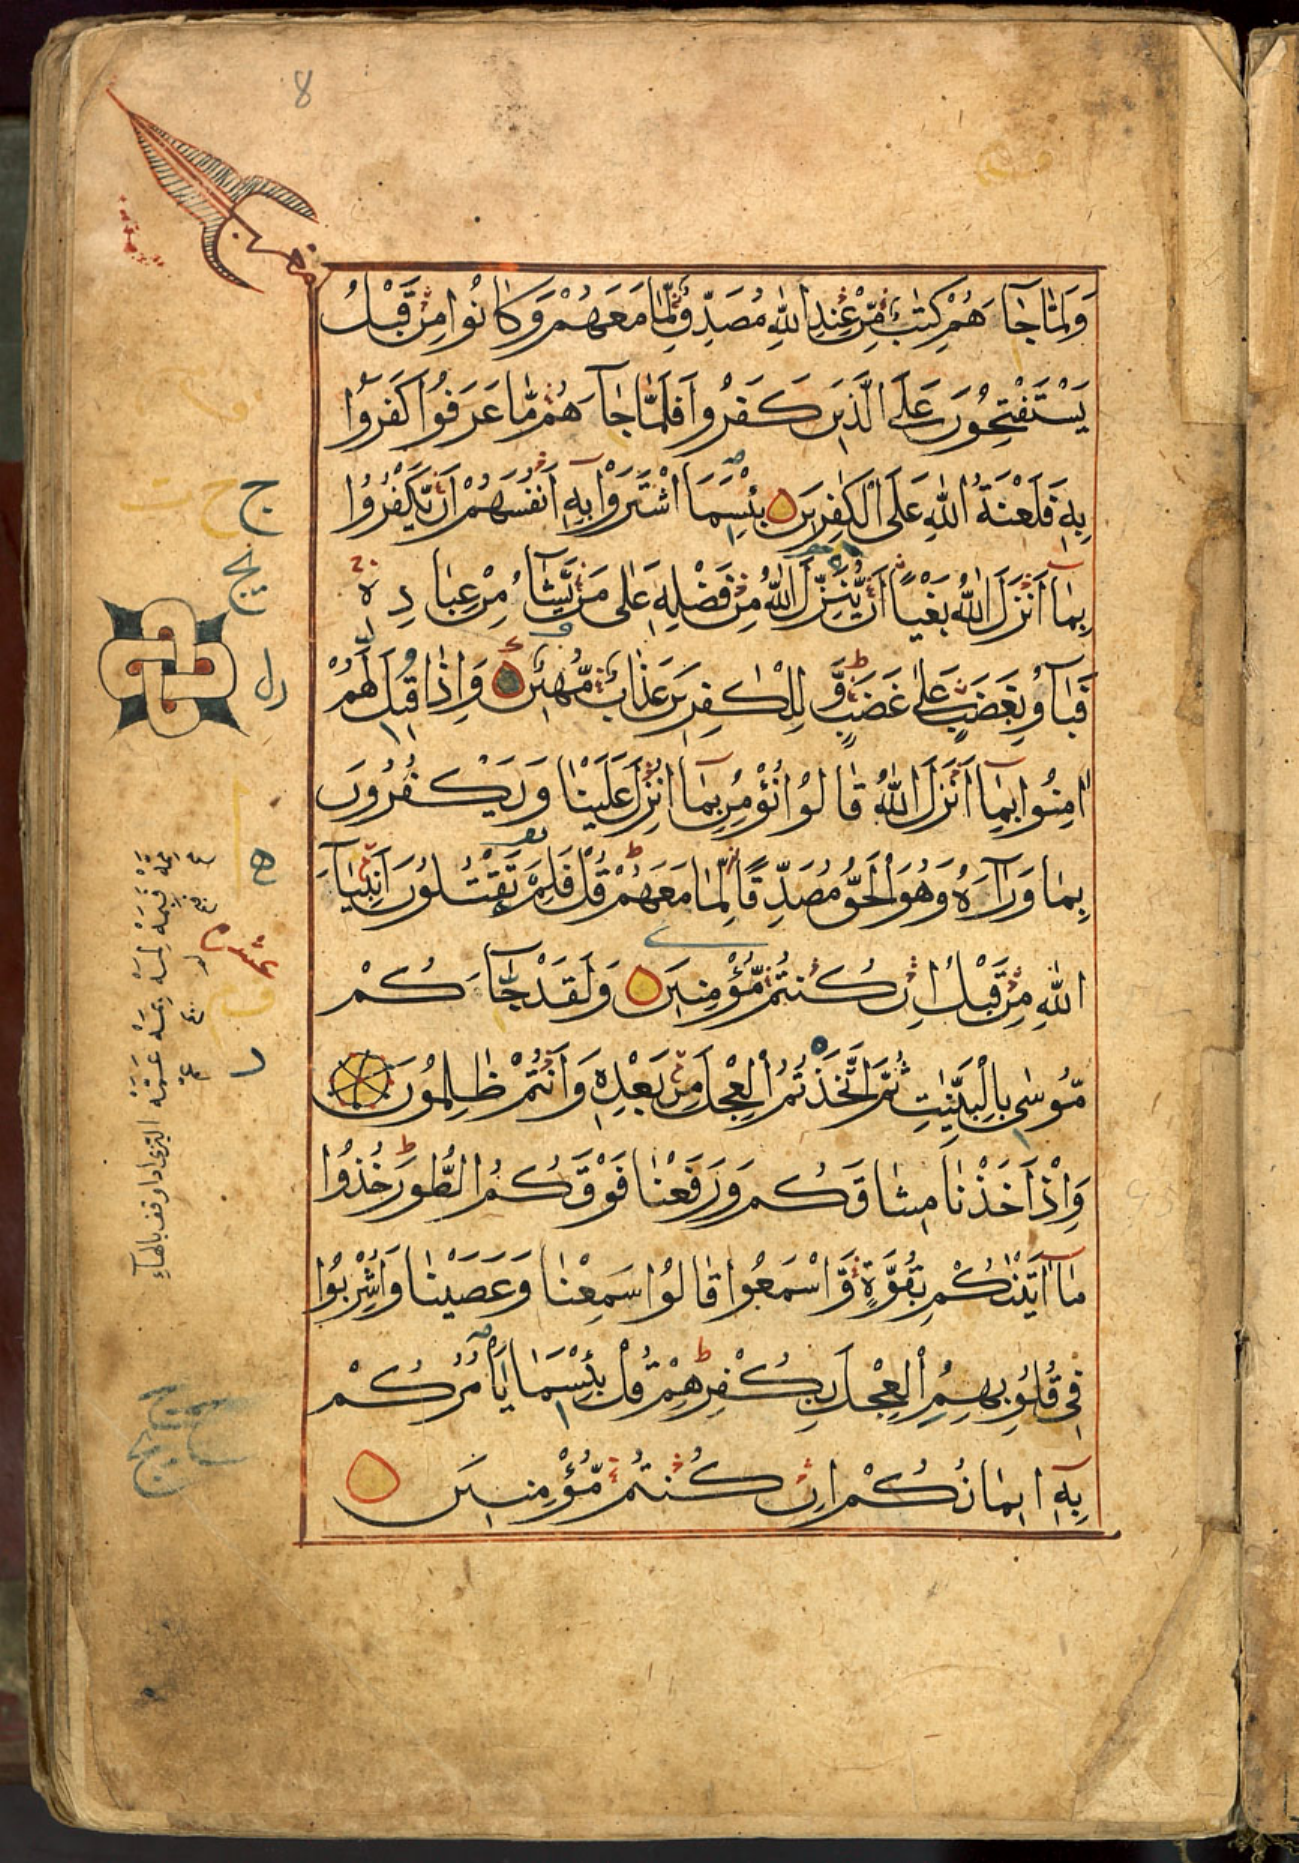 8
وَلَمَّا جَآءَهُمْ كِتٰبٌ مِّنْ عِنْدِ اللّٰهِ مُصَدِّقٌ لِّمَا مَعَهُمْ وَكَانُوا مِنْ قَبْلُ
يَسْتَفْتِحُونَ عَلَى الَّذِينَ كَفَرُوا فَلَمَّا جَآءَهُمْ مَّا عَرَفُوا كَفَرُوا
بِهٖ فَلَعْنَةُ اللّٰهِ عَلَى الْكٰفِرِينَ بِئْسَمَا اشْتَرَوْا بِهٖٓ اَنْفُسَهُمْ اَنْ يَّكْفُرُوا
بِمَآ اَنْزَلَ اللّٰهُ بَغْيًا اَنْ يُّنَزِّلَ اللّٰهُ مِنْ فَضْلِهٖ عَلٰى مَنْ يَّشَآءُ مِنْ عِبَادِهٖ
فَبَآؤُ بِغَضَبٍ عَلٰى غَضَبٍ وَّ لِلْكٰفِرِينَ عَذَابٌ مُّهِينٌ وَاِذَا قِيلَ لَهُمْ
اٰمِنُوا بِمَآ اَنْزَلَ اللّٰهُ قَالُوا نُؤْمِنُ بِمَآ اُنْزِلَ عَلَيْنَا وَيَكْفُرُونَ
بِمَا وَرَآءَهُ وَهُوَ الْحَقُّ مُصَدِّقًا لِّمَا مَعَهُمْ قُلْ فَلِمَ تَقْتُلُونَ اَنْبِيَآءَ
اللّٰهِ مِنْ قَبْلُ اِنْ كُنْتُمْ مُّؤْمِنِينَ وَلَقَدْ جَآءَكُمْ
مُّوسٰى بِالْبَيِّنٰتِ ثُمَّ اتَّخَذْتُمُ الْعِجْلَ مِنْ بَعْدِهٖ وَاَنْتُمْ ظٰلِمُونَ
وَاِذْ اَخَذْنَا مِيثَاقَكُمْ وَرَفَعْنَا فَوْقَكُمُ الطُّورَ خُذُوا
مَآ اٰتَيْنٰكُمْ بِقُوَّةٍ وَّاسْمَعُوا قَالُوا سَمِعْنَا وَعَصَيْنَا وَاُشْرِبُوا
فِى قُلُوبِهِمُ الْعِجْلَ بِكُفْرِهِمْ قُلْ بِئْسَمَا يَأْمُرُكُمْ
بِهٖٓ اِيمَانُكُمْ اِنْ كُنْتُمْ مُّؤْمِنِينَ